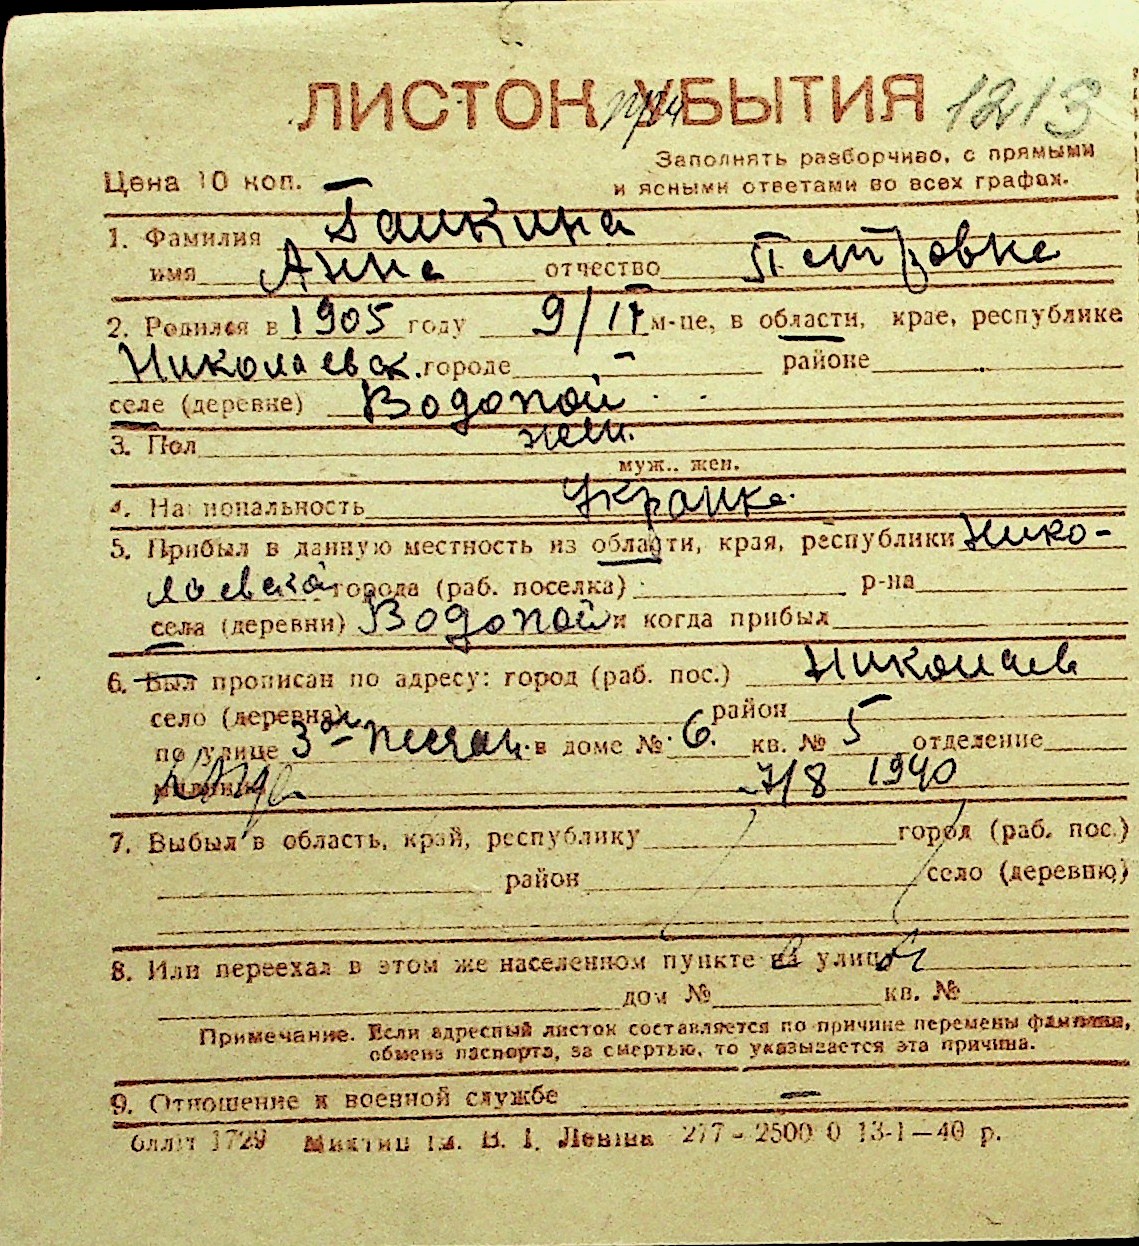 ЛИСТОК УБЫТИЯ 1213
при
Заполнять разборчиво, с прямыми
Цена 10 коп. и ясными ответами во всех графах.
1. Фамилия Галкина
имя Анна отчество Петровна
2. Родился в 1905 году 9/IV м-це, в области, крае, республике
Николаевск. городе — районе
селе (деревне) Водопой
3. Пол жен.
муж.. жен.
4. Национальность Украинка
5. Прибыл в данную местность из области, края, республики Нико-
лаевской города (раб. поселка) р-на
села (деревни) Водопой и когда прибыл
6. Был прописан по адресу: город (раб. пос.) Николаев
село (деревня) район
по улице 3ая Песчан. в доме № 6. кв. № 5 отделение
милиции 7/8 1940
7. Выбыл в область, край, республику город (раб. пос.)
район село (деревню)
8. Или переехал в этом же населенном пункте на улицу
дом № кв. №
Примечание. Если адресный листок составляется по причине перемены фамилии,
обмена паспорта, за смертью, то указывается эта причина.
9. Отношение к военной службе —
1729 В. І. Леніна 277 - 2500 0 13-1—40 р.